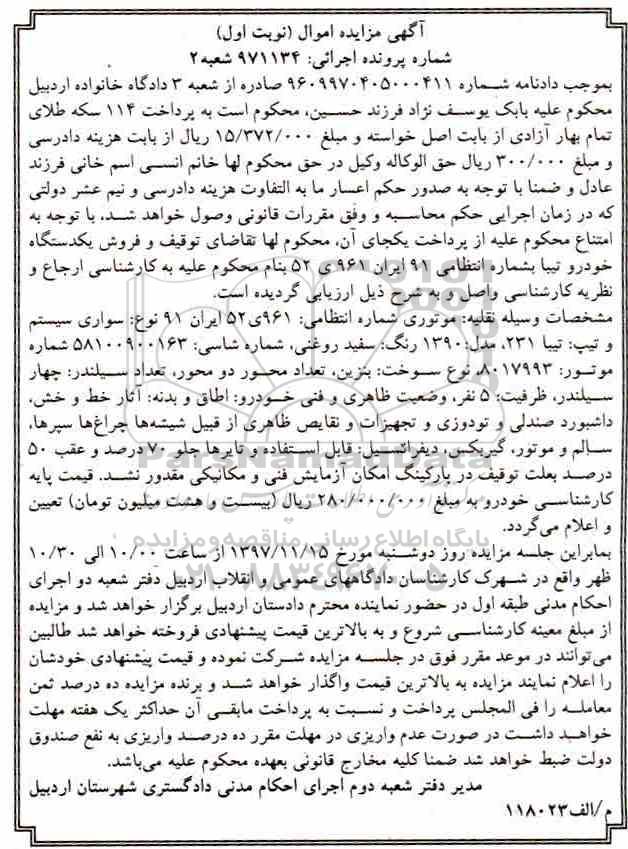 آگهی مزایده اموال (نوبت اول)
شماره پرونده اجرائی: ۹۷۱۱۳۴ شعبه۲
بموجب دادنامه شماره ۹۶۰۹۹۷۰۴۰۵۰۰۰۴۱۱ صادره از شعبه ۳ دادگاه خانواده اردبیل
محکوم علیه بابک یوسف نژاد فرزند حسین، محکوم است به پرداخت ۱۱۴ سکه طلای
تمام بهار آزادی از بابت اصل خواسته و مبلغ ۱۵/۳۷۲/۰۰۰ ریال از بابت هزینه دادرسی
و مبلغ ۳۰۰/۰۰۰ ریال حق الوکاله وکیل در حق محکوم لها خانم انسی اسم خانی فرزند
عادل و ضمنا با توجه به صدور حکم اعسار ما به التفاوت هزینه دادرسی و نیم عشر دولتی
که در زمان اجرایی حکم محاسبه و وفق مقررات قانونی وصول خواهد شد، با توجه به
امتناع محکوم علیه از پرداخت یکجای آن، محکوم لها تقاضای توقیف و فروش یکدستگاه
خودرو تیبا بشماره انتظامی ۹۱ ایران ۹۶۱ ی ۵۲ بنام محکوم علیه به کارشناسی ارجاع و
نظریه کارشناسی واصل و به شرح ذیل ارزیابی گردیده است.
مشخصات وسیله نقلیه: موتوری شماره انتظامی: ۹۶۱ی۵۲ ایران ۹۱ نوع: سواری سیستم
و تیپ: تیبا ۲۳۱، مدل:۱۳۹۰ رنگ: سفید روغنی، شماره شاسی: ۵۸۱۰۰۹۰۰۱۶۳ شماره
موتور: ۸۰۱۷۹۹۳، نوع سوخت: بنزین، تعداد محور دو محور، تعداد سیلندر: چهار
سیلندر، ظرفیت: ۵ نفر، وضعیت ظاهری و فنی خودرو: اطاق و بدنه: آثار خط و خش،
داشبورد صندلی و تودوزی و تجهیزات و نقایص ظاهری از قبیل شیشه‌ها چراغ‌ها سپرها،
سالم و موتور، گیربکس، دیفرانسیل: قابل استفاده و تایرها جلو ۷۰ درصد و عقب ۵۰
درصد بعلت توقیف در پارکینگ امکان آزمایش فنی و مکانیکی مقدور نشد. قیمت پایه
کارشناسی خودرو به مبلغ ۲۸۰/۰۰۰/۰۰۰ ریال (بیست و هشت میلیون تومان) تعیین
و اعلام می‌گردد.
بمابراین جلسه مزایده روز دوشنبه مورخ ۱۳۹۷/۱۱/۱۵ از ساعت ۱۰/۰۰ الی ۱۰/۳۰
ظهر واقع در شهرک کارشناسان دادگاههای عمومی و انقلاب اردبیل دفتر شعبه دو اجرای
احکام مدنی طبقه اول در حضور نماینده محترم دادستان اردبیل برگزار خواهد شد و مزایده
از مبلغ معینه کارشناسی شروع و به بالاترین قیمت پیشنهادی فروخته خواهد شد طالبین
می‌توانند در موعد مقرر فوق در جلسه مزایده شرکت نموده و قیمت پیشنهادی خودشان
را اعلام نمایند مزایده به بالاترین قیمت واگذار خواهد شد و برنده مزایده ده درصد ثمن
معامله را فی المجلس پرداخت و نسبت به پرداخت مابقی آن حداکثر یک هفته مهلت
خواهد داشت در صورت عدم واریزی در مهلت مقرر ده درصد واریزی به نفع صندوق
دولت ضبط خواهد شد ضمنا کلیه مخارج قانونی بعهده محکوم علیه می‌باشد.
مدیر دفتر شعبه دوم اجرای احکام مدنی دادگستری شهرستان اردبیل
م/الف۱۱۸۰۲۳
ParsNamadData
پایگاه اطلاع رسانی مناقصه و مزایده
۰۲۱-۸۸۳۴۹۶۷۰-۵